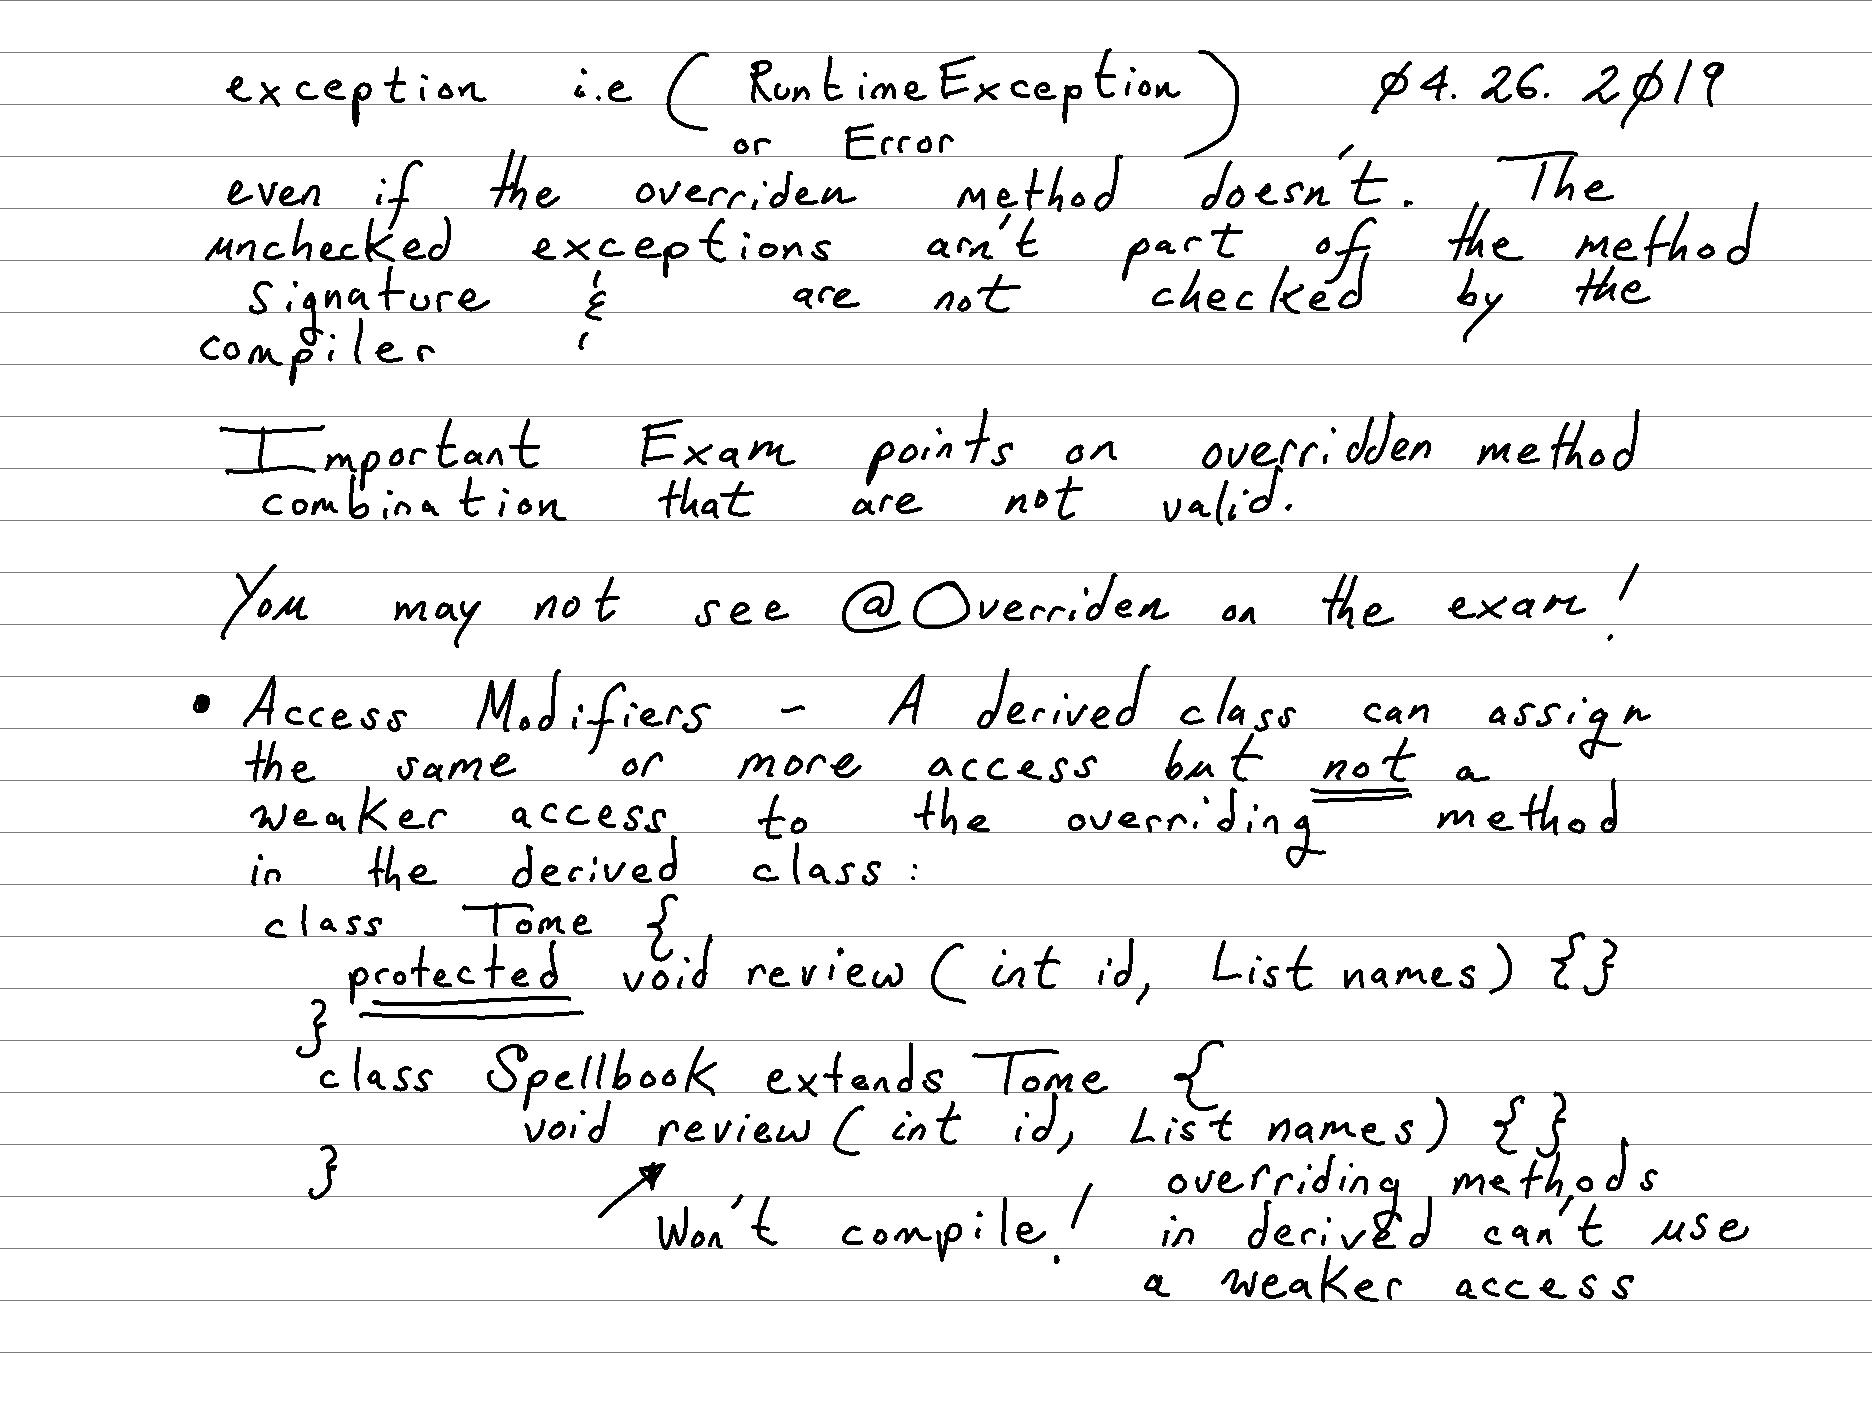 exception i.e ( RuntimeException ) Ø4. 26. 2Ø19
or Error
even if the overriden method doesn't. The
unchecked exceptions ain't part of the method
signature & are not checked by the
compiler
Important Exam points on overridden method
combination that are not valid.
You may not see @Overriden on the exam!
• Access Modifiers - A derived class can assign
the same or more access but not a
weaker access to the overriding method
in the derived class:
class Tome {
protected void review ( int id, List names) {}
}
class Spellbook extends Tome {
void review ( int id, List names) {}
} overriding methods
Won't compile! in derived can't use
a weaker access